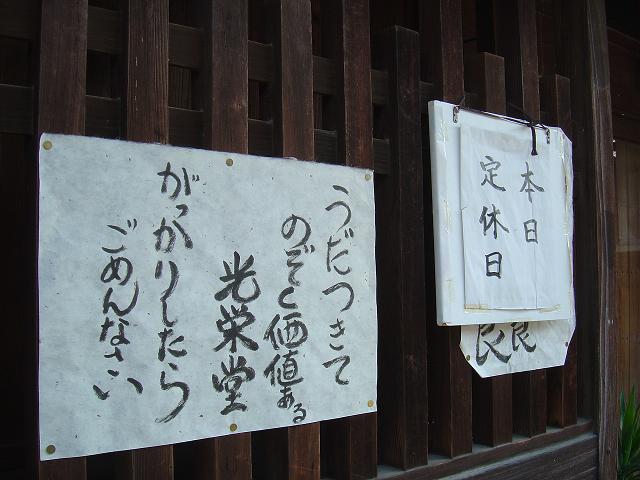 うだつきて
のぞく価値ある
光栄堂
がっかりしたら
ごめんなさい
本日
定休日